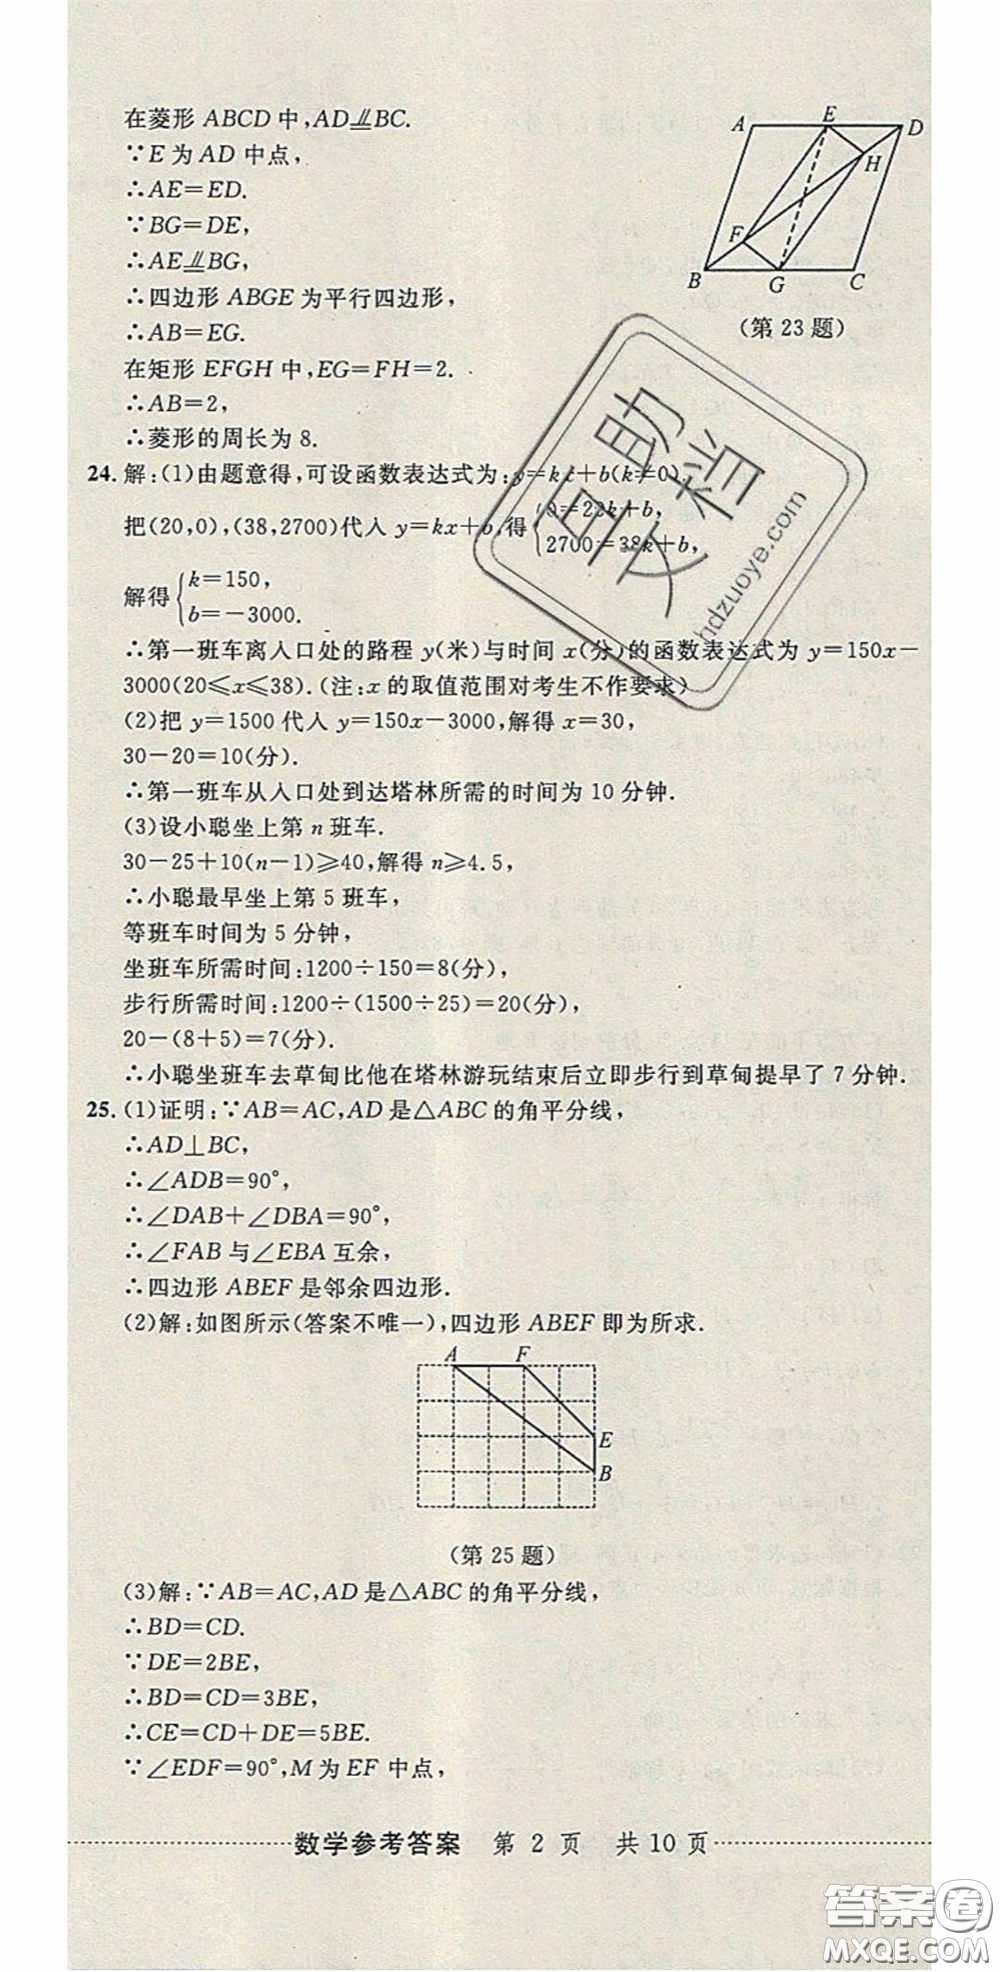 在菱形 ABCD 中,AD⫫BC.
∵E 为 AD 中点,
∴AE=ED.
∵BG=DE,
∴AE⫫BG,
∴四边形 ABGE 为平行四边形,
∴AB=EG.
在矩形 EFGH 中,EG=FH=2.
∴AB=2,
∴菱形的周长为 8.
A E D
H
F
B G C
(第 23 题)
24. 解:(1)由题意得,可设函数表达式为:y=kx+b(k≠0).
把(20,0),(38,2700)代入 y=kx+b,得
0=22k+b,
2700=38k+b,
解得
k=150,
b=-3000.
∴第一班车离入口处的路程 y(米)与时间 x(分)的函数表达式为 y=150x-
3000(20≤x≤38).(注:x 的取值范围对考生不作要求)
(2)把 y=1500 代入 y=150x-3000,解得 x=30,
30-20=10(分).
∴第一班车从入口处到达塔林所需的时间为 10 分钟.
(3)设小聪坐上第 n 班车.
30-25+10(n-1)≥40,解得 n≥4.5,
∴小聪最早坐上第 5 班车,
等班车时间为 5 分钟,
坐班车所需时间:1200÷150=8(分),
步行所需时间:1200÷(1500÷25)=20(分),
20-(8+5)=7(分).
∴小聪坐班车去草甸比他在塔林游玩结束后立即步行到草甸提早了 7 分钟.
25. (1)证明:∵AB=AC,AD 是△ABC 的角平分线,
∴AD⊥BC,
∴∠ADB=90°,
∴∠DAB+∠DBA=90°,
∴∠FAB 与∠EBA 互余,
∴四边形 ABEF 是邻余四边形.
(2)解:如图所示(答案不唯一),四边形 ABEF 即为所求.
A F
E
B
(第 25 题)
(3)解:∵AB=AC,AD 是△ABC 的角平分线,
∴BD=CD.
∵DE=2BE,
∴BD=CD=3BE,
∴CE=CD+DE=5BE.
∵∠EDF=90°,M 为 EF 中点,
数学参考答案 第 2 页 共 10 页
自助
文档
hdzuoye.com
答案圈
MXQE.COM